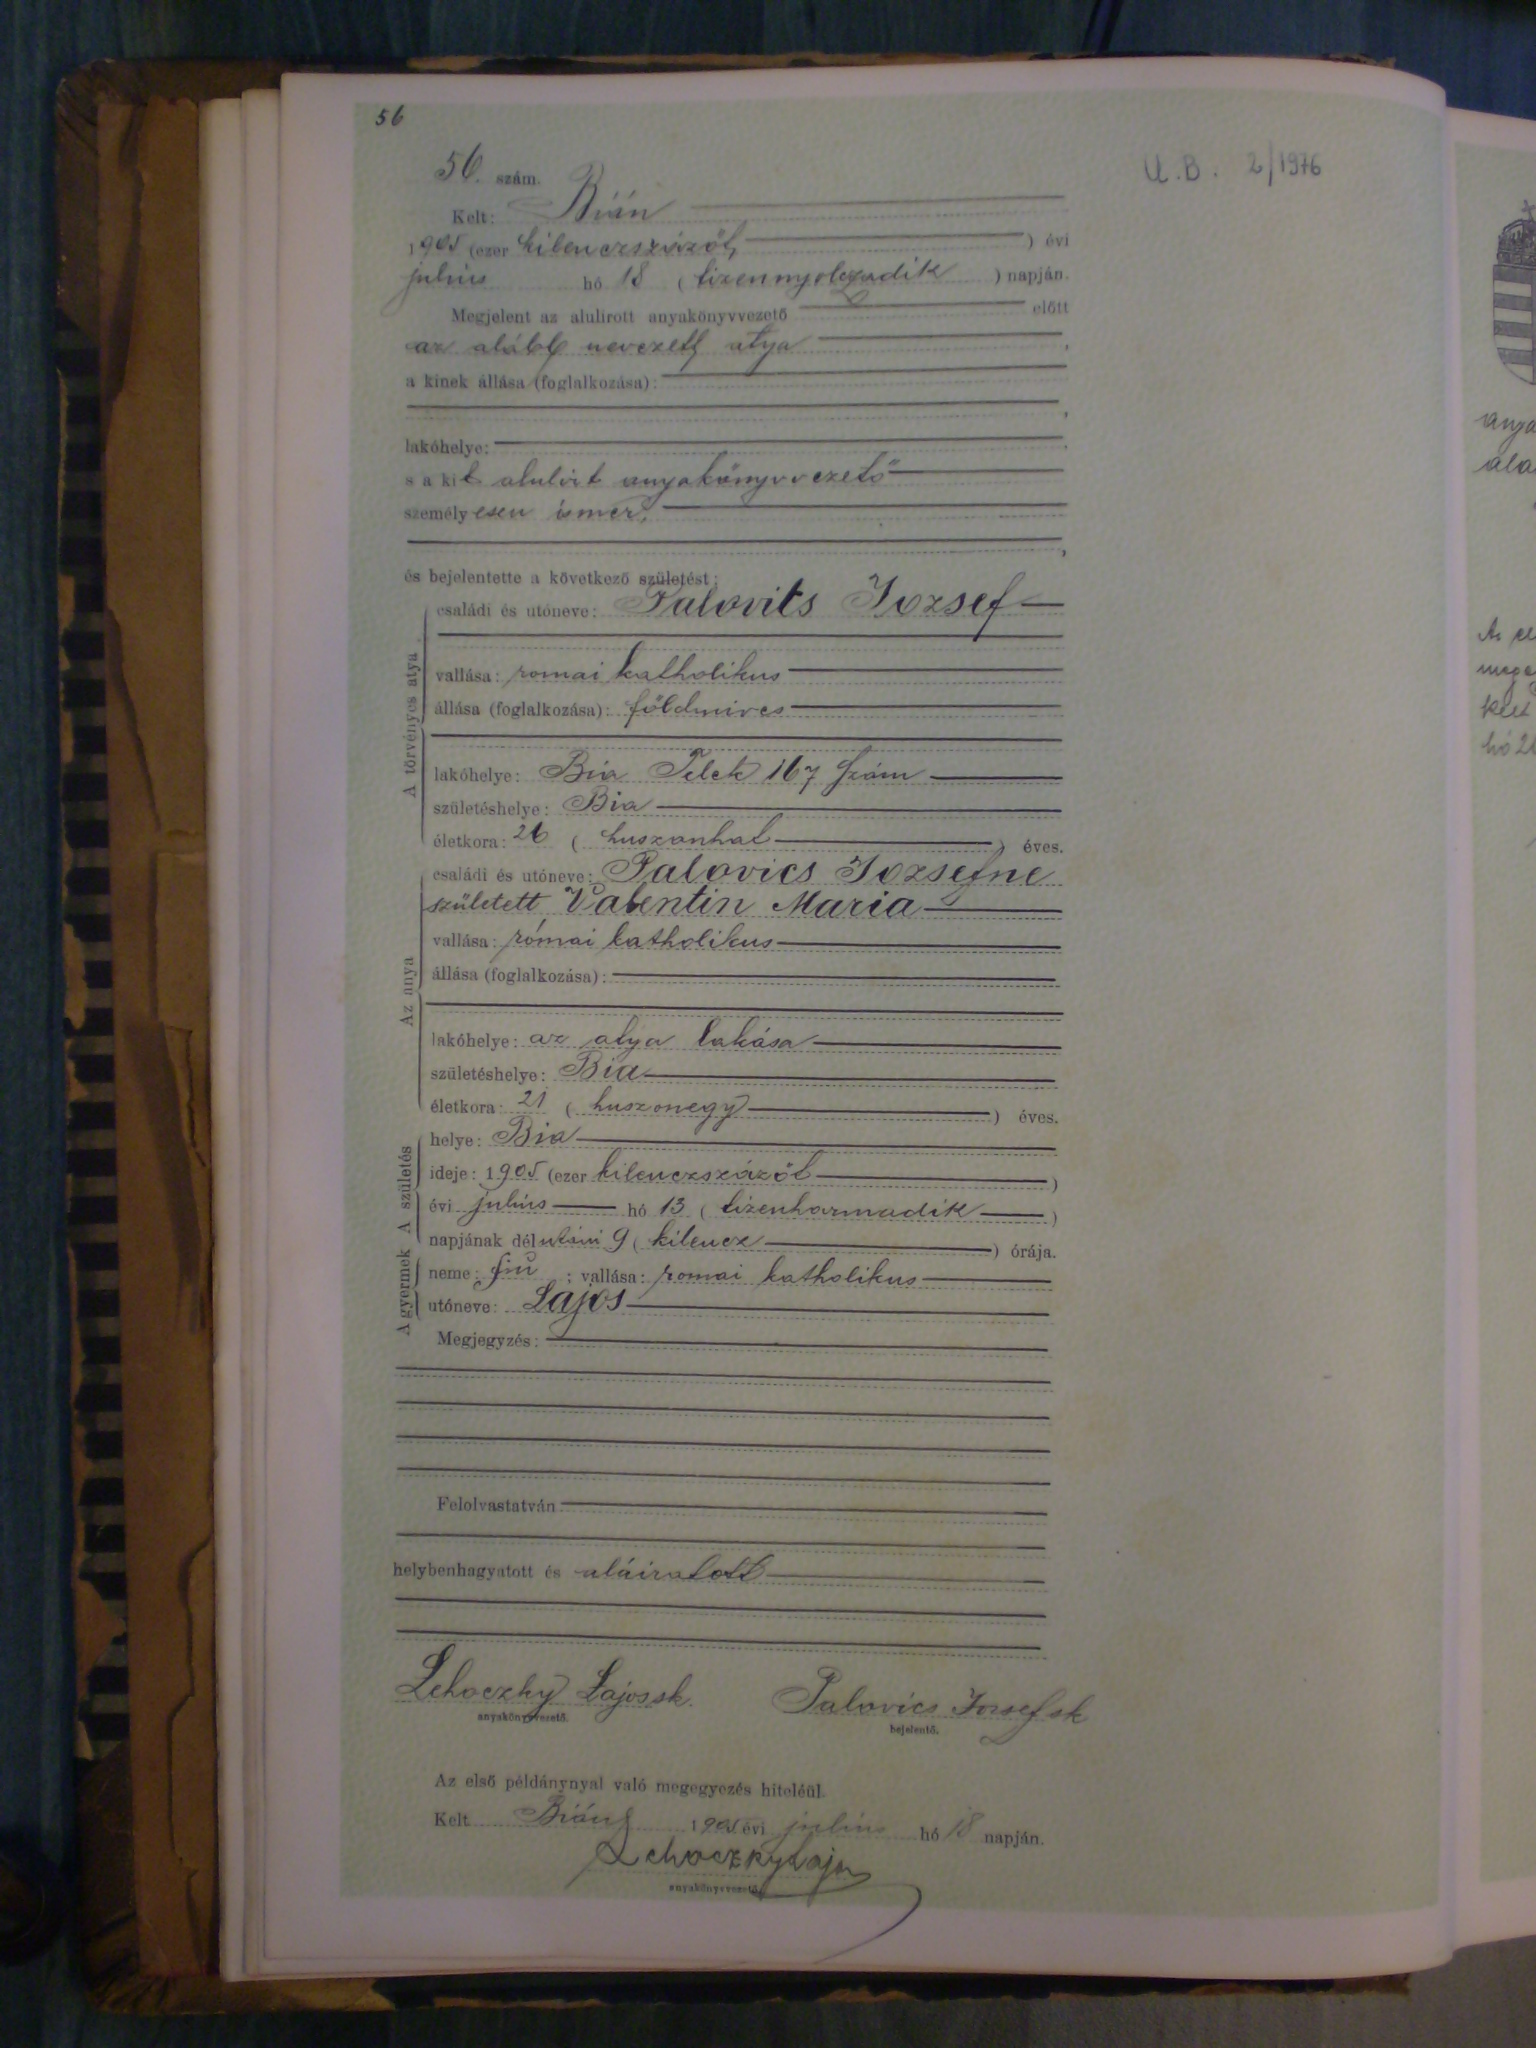 56
56. szám.
U.B. 2/1976
Kelt: Bián
1905 (ezer kilenczszázöt) évi
julius hó 18 (tizennyolczadik) napján.
Megjelent az alulirott anyakönyvvezető előtt
az alább nevezett atya,
a kinek állása (foglalkozása):
,
lakóhelye:
s a kit alulirt anyakönyvvezető
személyesen ismer,
,
és bejelentette a következő születést:
A törvényes atya
családi és utóneve: Palovits Jozsef
vallása: romai katholikus
állása (foglalkozása): földmives
lakóhelye: Bia Telek 167 szám
születéshelye: Bia
életkora: 26 (huszonhat) éves.
Az anya
családi és utóneve: Palovics Jozsefne
született Valentin Maria
vallása: római katholikus
állása (foglalkozása):
lakóhelye: az atya lakása
születéshelye: Bia
életkora: 21 (huszonegy) éves.
A születés
helye: Bia
ideje: 1905 (ezer kilenczszázöt)
évi julius hó 13 (tizenharmadik)
napjának délutáni 9 (kilencz) órája.
A gyermek
neme: fiu; vallása: romai katholikus
utóneve: Lajos
Megjegyzés:
Felolvastatván
helybenhagyatott és aláiratott
Lehoczky Lajos sk. Palovics Jozsef sk
anyakönyvvezető. bejelentő.
Az első példánynyal való megegyezés hiteléül.
Kelt Bián 1905 évi julius hó 18 napján.
Lehoczky Lajos
anyakönyvvezető.